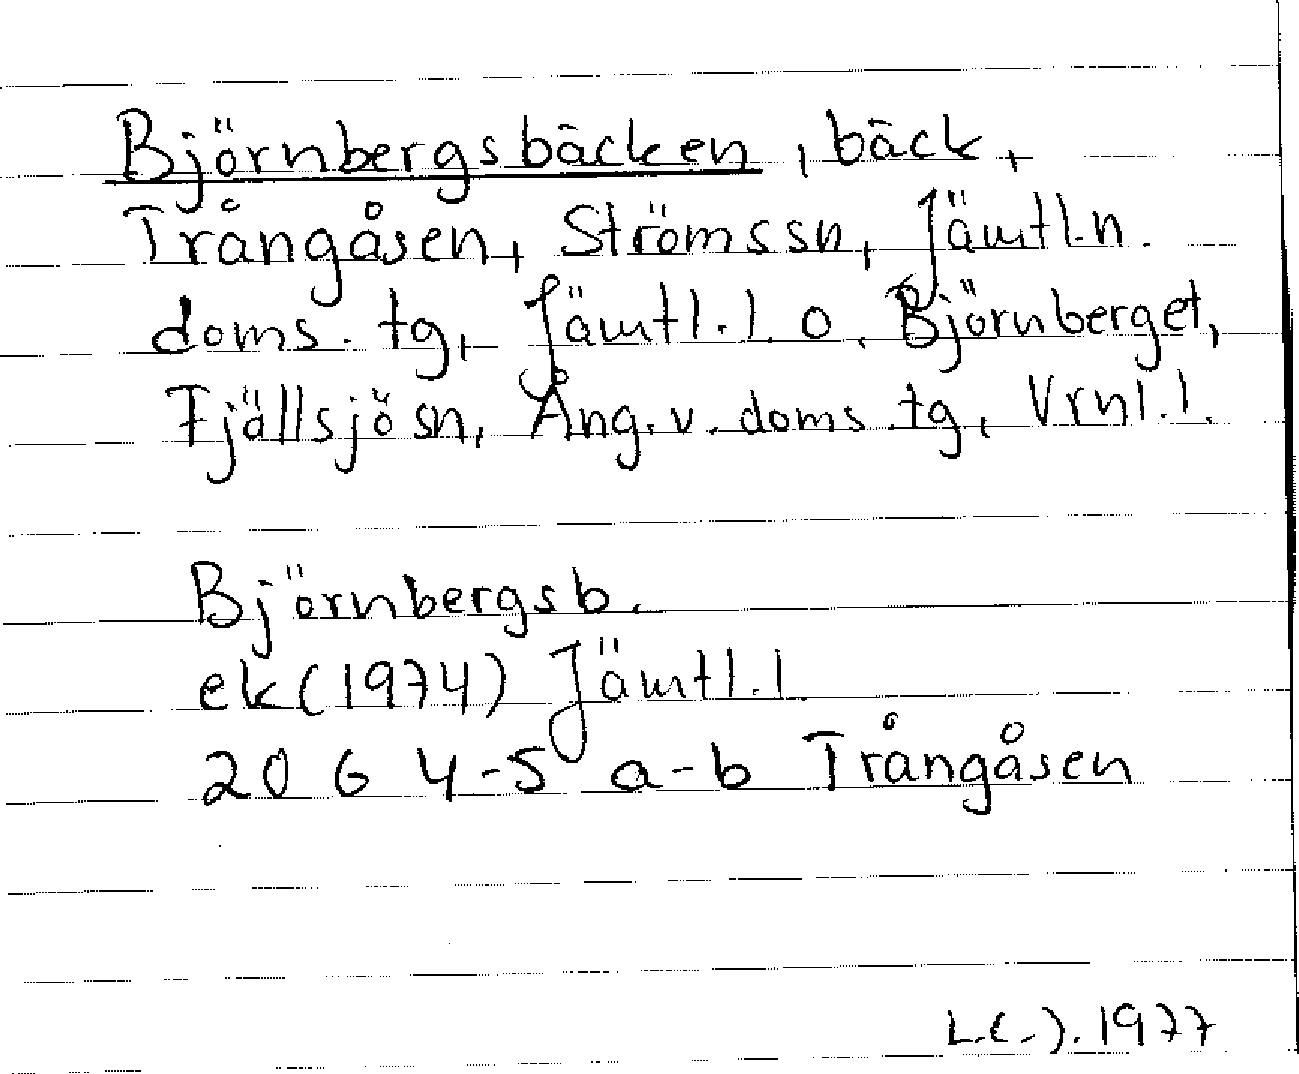 Björnbergsbäcken, bäck,
Trångåsen, Ströms sn, Jämtl. n.
doms. tg, Jämtl. l. o. Björnberget,
Fjällsjö sn, Ång. v. doms. tg, Vrnl. l.
Björnbergsb.
ek (1974) Jämtl. l
20 G 4-5 a-b Trångåsen
1977